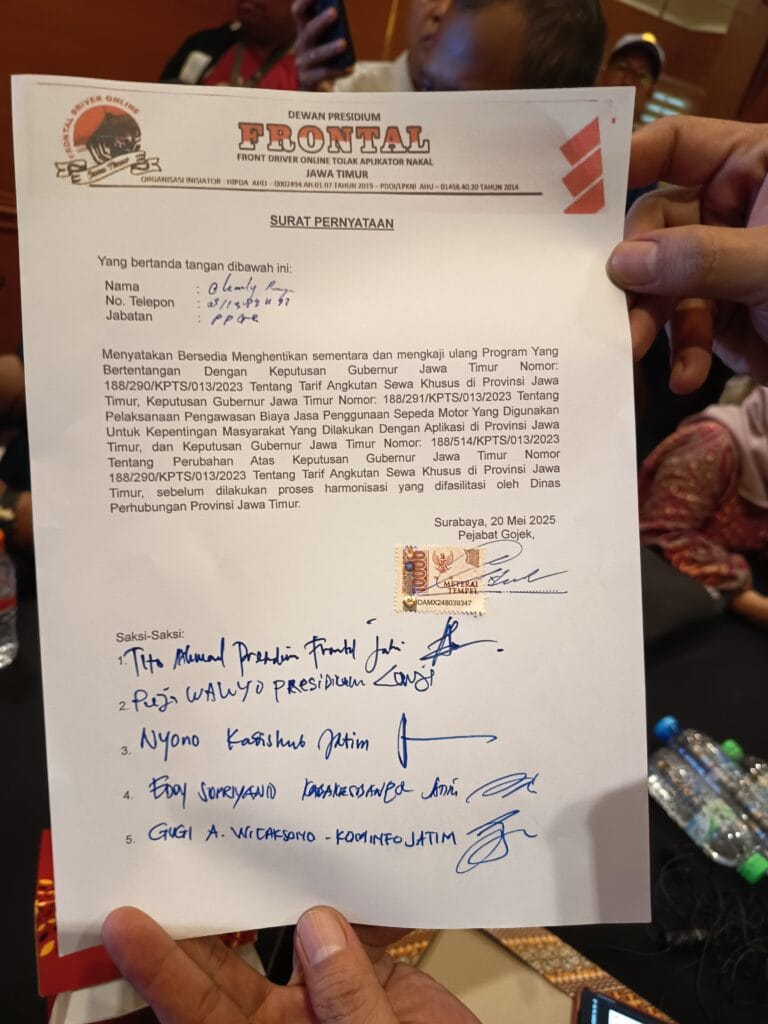 FRONTAL DRIVER ONLINE
Jawa Timur
DEWAN PRESIDIUM
FRONTAL
FRONT DRIVER ONLINE TOLAK APLIKATOR NAKAL
JAWA TIMUR
ORGANISASI INISIATOR : HIPDA AHU - 0002494.AH.01.07.TAHUN 2019 - PDOI/LPKNI AHU - 01458.40.20 TAHUN 2014
SURAT PERNYATAAN
Yang bertanda tangan dibawah ini:
Nama :
No. Telepon :
Jabatan :
Menyatakan Bersedia Menghentikan sementara dan mengkaji ulang Program Yang
Bertentangan Dengan Keputusan Gubernur Jawa Timur Nomor:
188/290/KPTS/013/2023 Tentang Tarif Angkutan Sewa Khusus di Provinsi Jawa
Timur, Keputusan Gubernur Jawa Timur Nomor: 188/291/KPTS/013/2023 Tentang
Pelaksanaan Pengawasan Biaya Jasa Penggunaan Sepeda Motor Yang Digunakan
Untuk Kepentingan Masyarakat Yang Dilakukan Dengan Aplikasi di Provinsi Jawa
Timur, dan Keputusan Gubernur Jawa Timur Nomor: 188/514/KPTS/013/2023
Tentang Perubahan Atas Keputusan Gubernur Jawa Timur Nomor
188/290/KPTS/013/2023 Tentang Tarif Angkutan Sewa Khusus di Provinsi Jawa
Timur, sebelum dilakukan proses harmonisasi yang difasilitasi oleh Dinas
Perhubungan Provinsi Jawa Timur.
Surabaya, 20 Mei 2025
Pejabat Gojek,
10000
METERAI
TEMPEL
IDAMX248039347
Saksi-Saksi:
1. Tito Ahmad Presidium Frontal Jatim
2. WAWYO PRESIDIUM
3. Nyono Kadishub Jatim
4. EDDY SUPRIYANTO KABAKESBANGPOL JATIM
5. GUGI A. WICAKSONO - KOMINFO JATIM